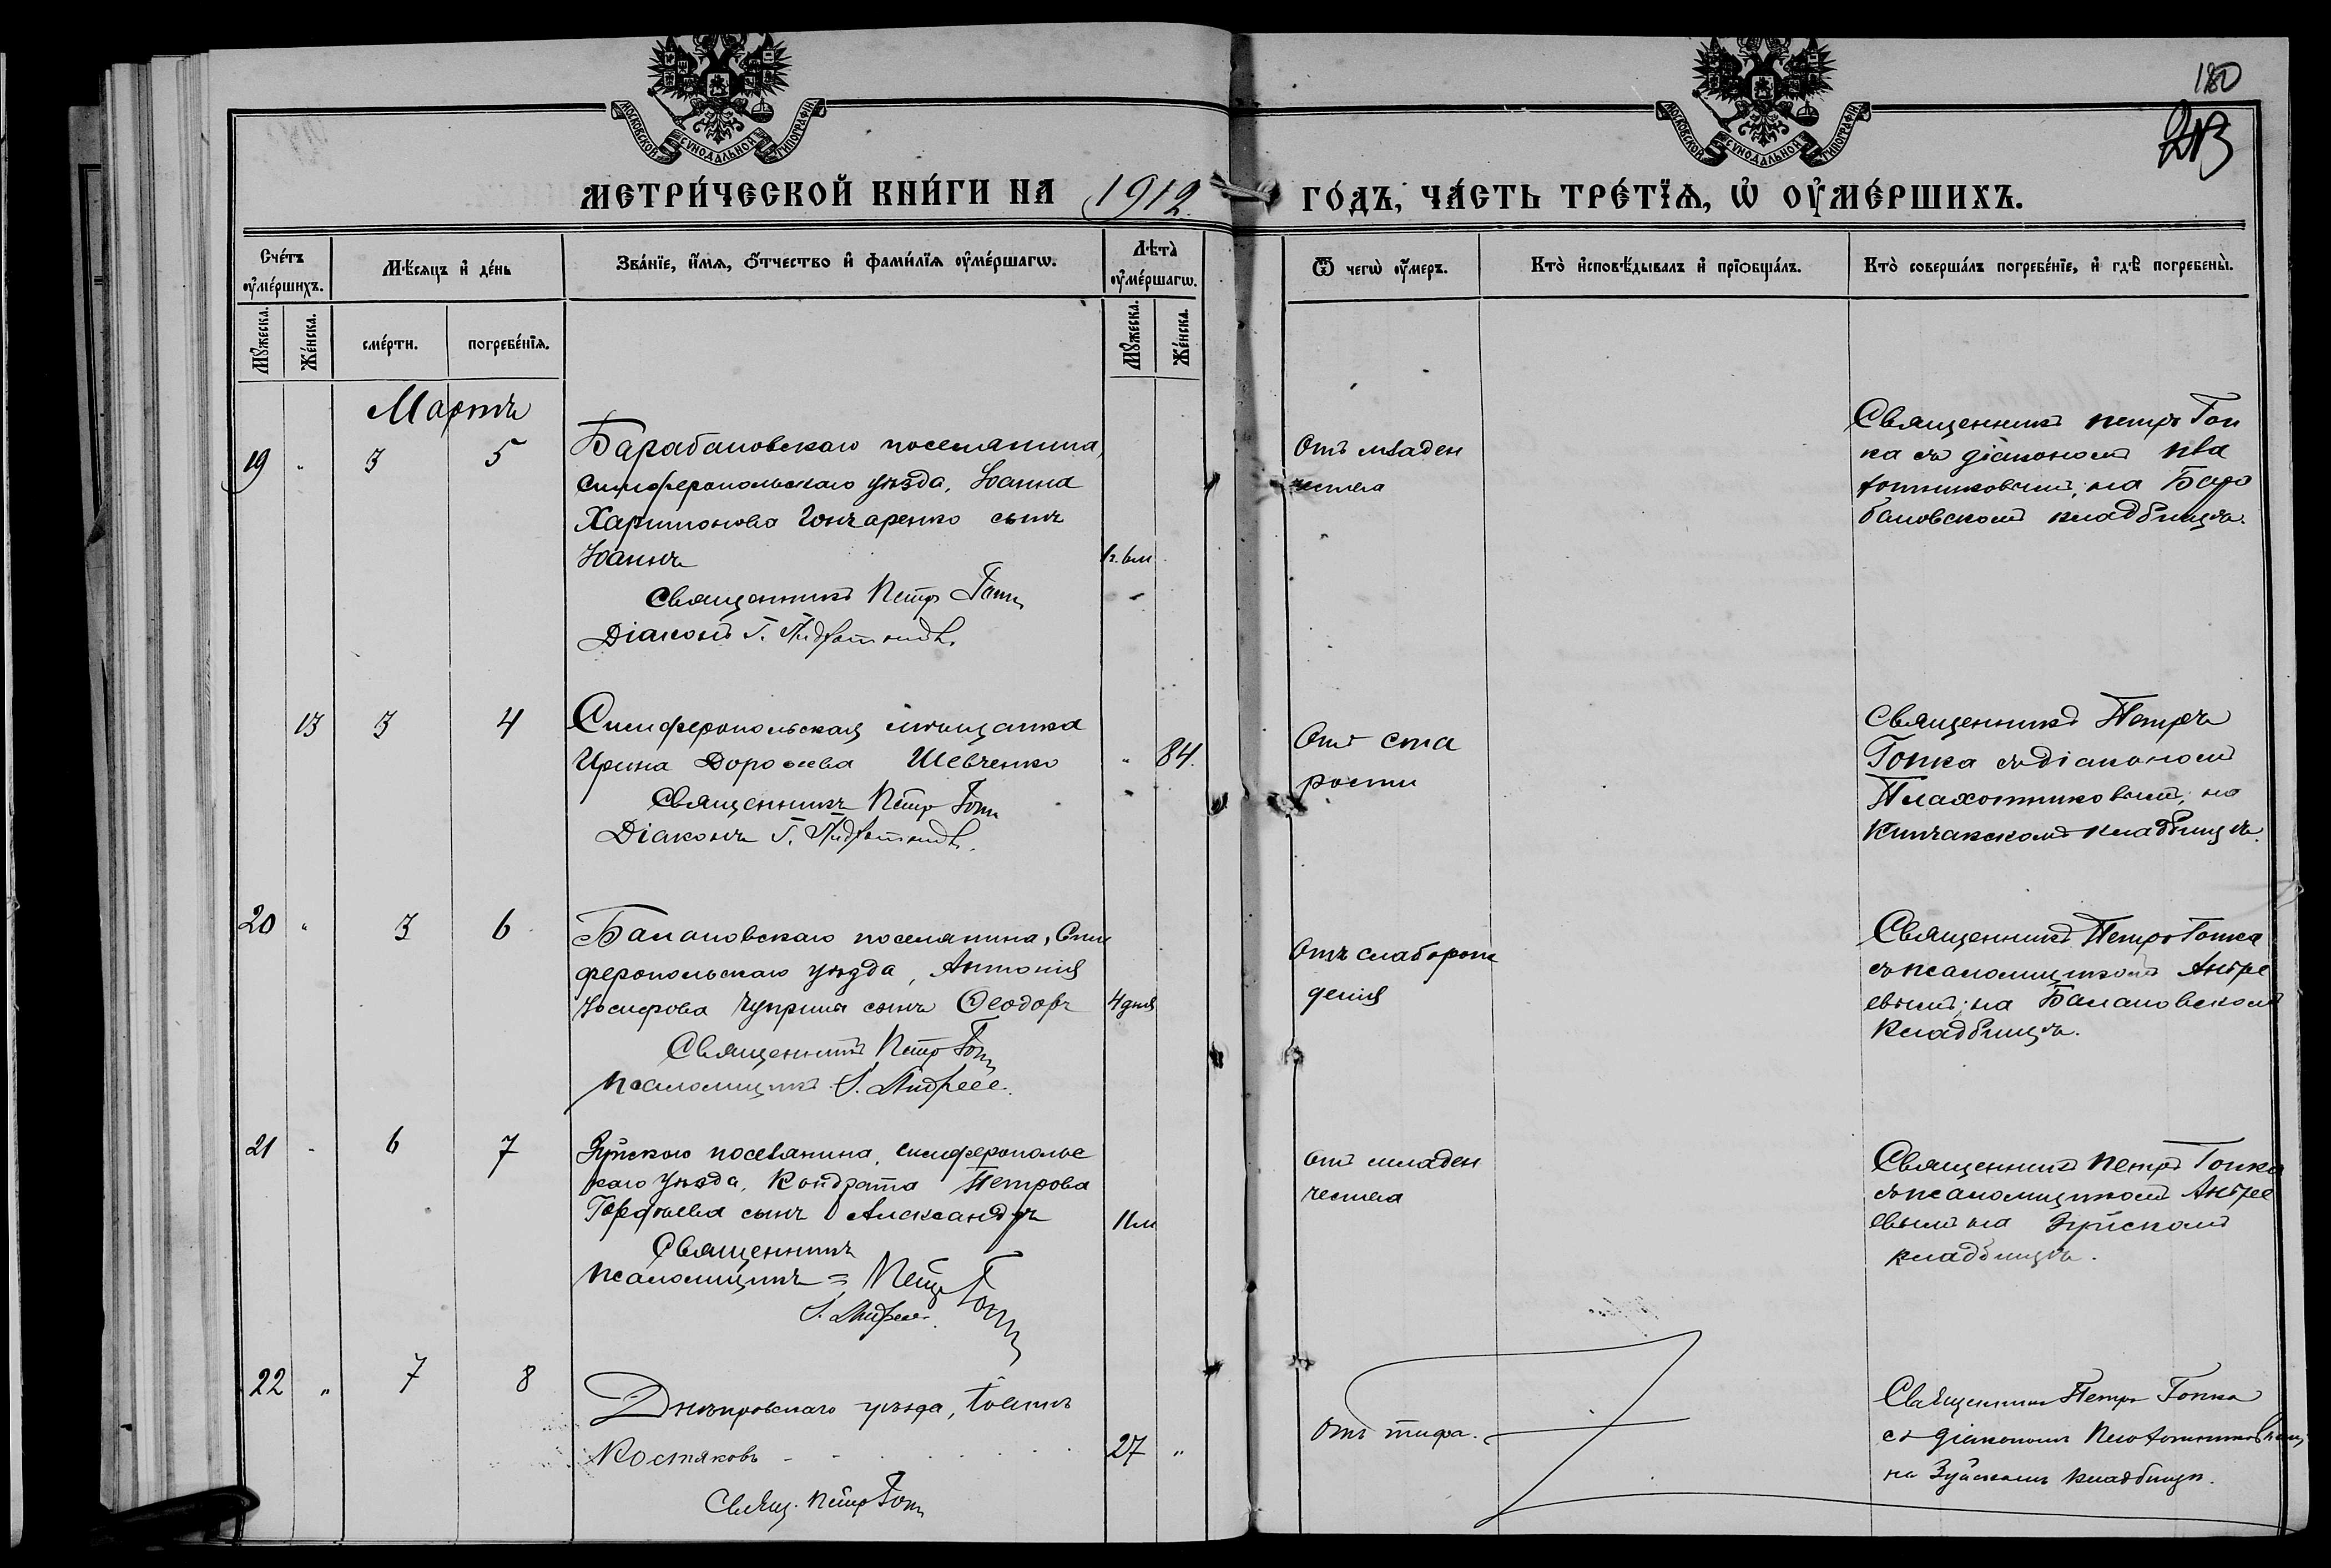 180
213
МОСКОВСКОЙ СѴНОДАЛЬНОЙ ТИПОГРАФІИ
МОСКОВСКОЙ СѴНОДАЛЬНОЙ ТИПОГРАФІИ
МЕТРИ́ЧЕСКОЙ КНИ́ГИ НА 1912 ГО́ДЪ, ЧА́СТЬ ТРЕ́ТЇѦ, Ѡ҆ ОУ҆МЕ́РШИХЪ.
Сче́тъ оу҆ме́ршихъ.
Мѣ́сяцъ и҆ де́нь
Зва́нїе, и҆́мѧ, ѻ҆́тчество и҆ фами́лїѧ оу҆ме́ршагѡ.
Лѣта̀ оу҆ме́ршагѡ.
Ѿ чегѡ̀ оу҆́меръ.
Кто̀ и҆сповѣ́дывалъ и҆ прїѡбща́лъ.
Кто̀ соверша́лъ погребе́нїе, и҆ гдѣ̀ погребены̀.
Мꙋ́жеска.
Же́нска.
сме́рти.
погребе́нїѧ.
Мꙋ́жеска.
Же́нска.
Мартъ
19 " 3 5
Барабановскаго поселянина,
Симферопольскаго уѣзда, Іоанна
Харитонова Гончаренко сынъ
Іоаннъ
1г. 6м
Священникъ Петръ Гопка
Діаконъ Г.
Отъ младен
чества
Священникъ Петръ Гоп
ка съ діакономъ Пла
хотниковымъ, на Бара
бановскомъ кладбищѣ.
13 3 4
Симферопольская мѣщанка
Ирина Дорофеева Шевченко
" 84.
Священникъ Петръ Гопка
Діаконъ Г.
Отъ ста
рости
Священникъ Петръ
Гопка съ діакономъ
Плахотниковымъ, на
Кипчакскомъ кладбищѣ.
20 " 3 6
Балановскаго поселянина, Сим
феропольскаго уѣзда, Антонія
Іосифова Чуприна сынъ Ѳеодоръ
4 дня
Священникъ Петръ Гопка
Псаломщикъ І. Андреев.
Отъ слаборож
денія
Священникъ Петръ Гопка
съ псаломщикомъ Андре
евымъ, на Балановскомъ
Кладбищѣ.
21 " 6 7
Зуйскаго поселянина, Симферопольс
каго уѣзда, Кондрата Петрова
Гордѣева сынъ Александръ
11 м
Священникъ
Псаломщикъ = Петръ Гопка
І. Андреев.
Отъ младен
чества
Священникъ Петръ Гопка
съ псаломщикомъ Андре
евымъ на Зуйскомъ
кладбищѣ.
22 " 7 8
Днѣпровскаго уѣзда, Іоаннъ
Костяковъ
27 "
Свящ. Петръ Гопка
Отъ тифа.
Священникъ Петръ Гопка
съ діакономъ Плохотниковымъ
на Зуйскомъ кладбищѣ.